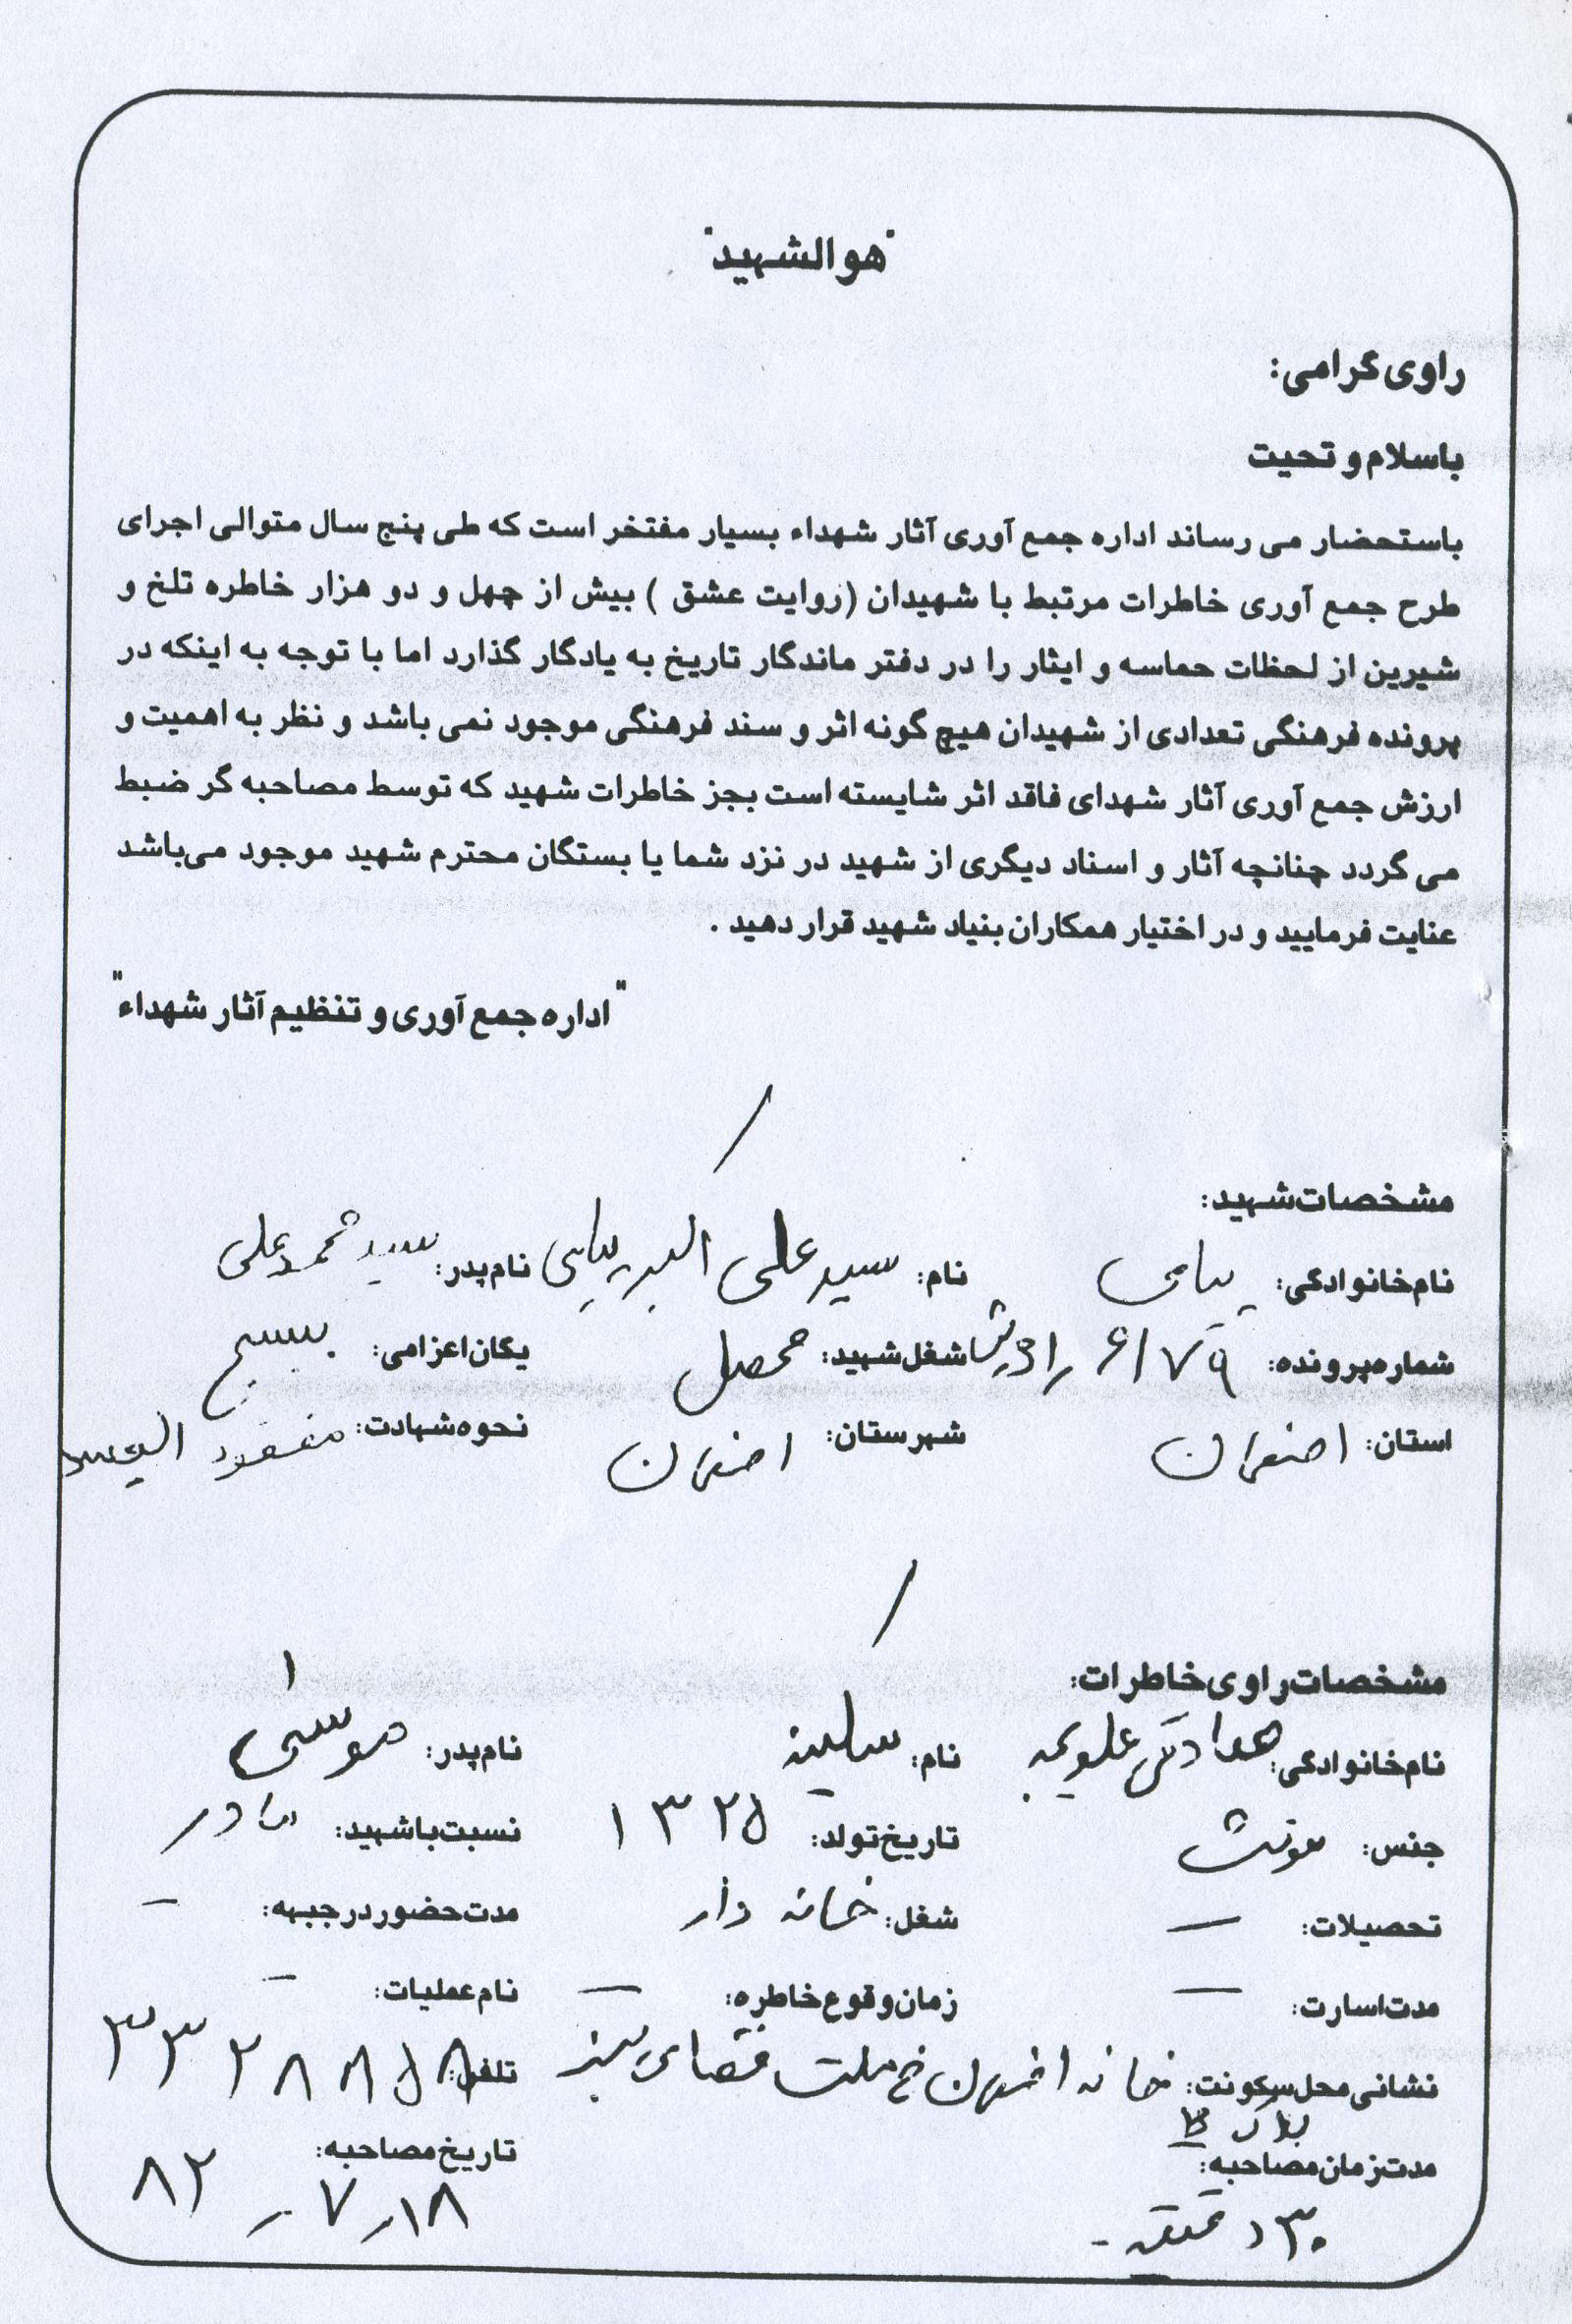 "هوالشهید"
راوی گرامی:
باسلام و تحیت
باستحضار می رساند اداره جمع آوری آثار شهداء بسیار مفتخر است که طی پنج سال متوالی اجرای
طرح جمع آوری خاطرات مرتبط با شهیدان (روایت عشق ) بیش از چهل و دو هزار خاطره تلخ و
شیرین از لحظات حماسه و ایثار را در دفتر ماندگار تاریخ به یادگار گذارد اما با توجه به اینکه در
پرونده فرهنگی تعدادی از شهیدان هیچ گونه اثر و سند فرهنگی موجود نمی باشد و نظر به اهمیت و
ارزش جمع آوری آثار شهدای فاقد اثر شایسته است بجز خاطرات شهید که توسط مصاحبه گر ضبط
می گردد چنانچه آثار و اسناد دیگری از شهید در نزد شما یا بستگان محترم شهید موجود می‌باشد
عنایت فرمایید و در اختیار همکاران بنیاد شهید قرار دهید .
"اداره جمع آوری و تنظیم آثار شهداء"
مشخصات شهید:
نام خانوادگی: نام: سید علی اکبر نام پدر: سید محمد علی
شماره پرونده: ۶۱۷۹ شغل شهید: محصل یگان اعزامی: بسیج
استان: اصفهان شهرستان: اصفهان نحوه شهادت: مفقود الجسد
مشخصات راوی خاطرات:
نام خانوادگی: علویجه نام: سکینه نام پدر: موسی
جنس: مونث تاریخ تولد: ۱۳۲۵ نسبت با شهید: مادر
تحصیلات: – شغل: خانه دار مدت حضور در جبهه: –
مدت اسارت: – زمان وقوع خاطره: – نام عملیات: –
نشانی محل سکونت: خانه اصفهان خ ملت فضای سبز تلفن: ۳۳۲۸۸۵۸
پلاک
مدت زمان مصاحبه: تاریخ مصاحبه:
۳۰ دقیقه - ۱۸ر۷ر۸۲